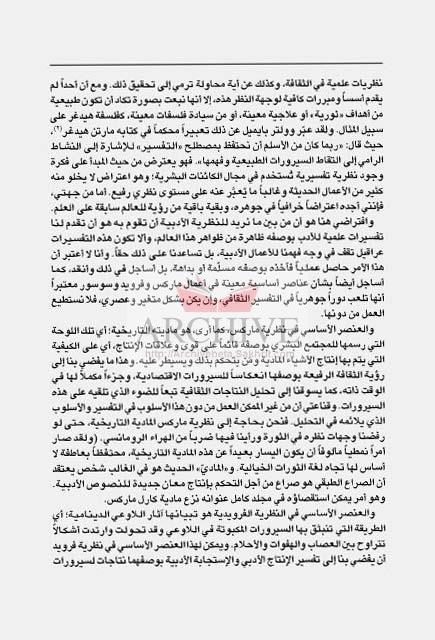 نظريات علمية في الثقافة، وكذلك عن أية محاولة ترمي إلى تحقيق ذلك. ومع أن أحداً لم
يقدم أسساً ومبررات كافية لوجهة النظر هذه، إلا أنها نبعت بصورة تكاد أن تكون طبيعية
من أهداف «ثورية» أو علاجية معينة، أو من سيادة فلسفات معينة، كفلسفة هيدغر على
سبيل المثال. ولقد عبّر وولتر بايميل عن ذلك تعبيراً محكماً في كتابه مارتن هيدغر(٢)،
حيث قال: «ربما كان من الأسلم أن نحتفظ بمصطلح «التفسير» للإشارة إلى النشاط
الرامي إلى التقاط السيرورات الطبيعية وفهمها». فهو يعترض من حيث المبدأ على فكرة
وجود نظرية تفسيرية تُستخدم في مجال الكائنات البشرية؛ وهو اعتراض لا يخلو منه
كثير من الأعمال الحديثة وغالباً ما يُعبَّر عنه على مستوى نظري رفيع. أما من جهتي،
فإنني أجده اعتراضاً خرافياً في جوهره، وبقية باقية من رؤية للعالم سابقة على العلم.
وافتراضي هنا هو أن من بين ما نريد للنظرية الأدبية أن تقوم به هو أن تقدم لنا
تفسيرات علمية للأدب بوصفه ظاهرة من ظواهر هذا العالم، وألا تكون هذه التفسيرات
عراقيل تقف في وجه فهمنا للأعمال الأدبية، بل تساعدنا على ذلك حقاً. وأنا لا أعتبر أن
هذا الأمر حاصل عملياً فآخذه بوصفه مسلّمة أو بداهة، بل أساجل في ذلك وأنقد، كما
أساجل أيضاً بشأن عناصر أساسية معينة في أعمال ماركس وفرويد وسوسور معتبراً
أنها تلعب دوراً جوهرياً في التفسير الثقافي، وإن يكن بشكل متغير وعصري، فلا نستطيع
العمل من دونها.
والعنصر الأساسي في نظرية ماركس، كما أرى، هو ماديته التاريخية؛ أي تلك اللوحة
التي رسمها للمجتمع البشري بوصفه قائماً على قوى وعلاقات الإنتاج، أي على الكيفية
التي يتم بها إنتاج الأشياء المادية ومن يتحكم بذلك ويسيطر عليه. وهذا ما يفضي بنا إلى
رؤية الثقافة الرفيعة بوصفها انعكاساً للسيرورات الاقتصادية، وجزءاً مكملاً لها في
الوقت ذاته، كما يسوقنا إلى تحليل النتاجات الثقافية تبعاً للضوء الذي تلقيه على هذه
السيرورات. وقناعتي أن من غير الممكن العمل من دون هذا الأسلوب في التفسير والأسلوب
الذي يلائمه في التحليل. فنحن بحاجة إلى نظرية ماركس المادية التاريخية، حتى لو
رفضنا وجهات نظره في الثورة ورأينا فيها ضرباً من الهراء الرومانسي. (ولقد صار
أمراً نمطياً مألوفاً أن يكون اليسار بعيداً عن هذه المادية التاريخية، محتفظاً بعاطفة لا
أساس لها تجاه لغة الثورات الخيالية. و«الماديّ» الحديث هو في الغالب شخص يعتقد
أن الصراع الطبقي هو صراع من أجل التحكم بإنتاج معان جديدة للنصوص الأدبية.
وهو أمر يمكن استقصاؤه في مجلد كامل عنوانه نزع مادية كارل ماركس.
والعنصر الأساسي في النظرية الفرويدية هو تبيانها آثار اللاوعي الدينامية؛ أي
الطريقة التي تنبثق بها السيرورات المكبوتة في اللاوعي وقد تحولت وارتدت أشكالاً
تتراوح بين العصاب والهفوات والأحلام. ويمكن لهذا العنصر الأساسي في نظرية فرويد
أن يفضي بنا إلى تفسير الإنتاج الأدبي والإستجابة الأدبية بوصفهما نتاجات لسيرورات
ARCHIVE
http://Archivebeta.Sakhrit.com